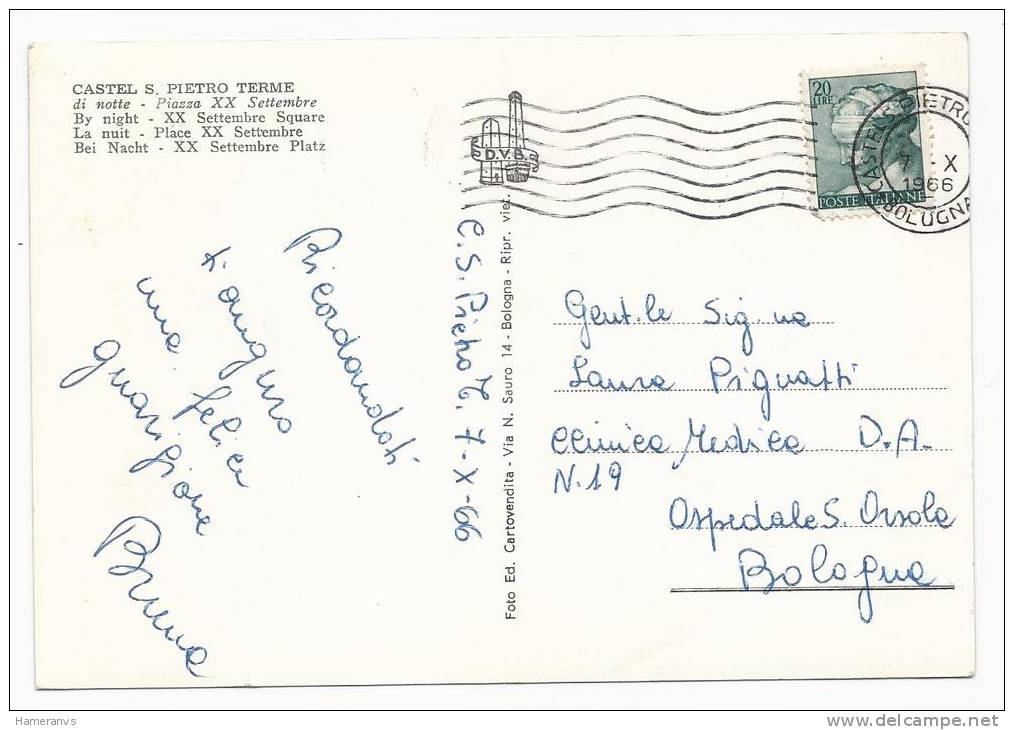 CASTEL S. PIETRO TERME
di notte - Piazza XX Settembre
By night - XX Settembre Square
La nuit - Place XX Settembre
Bei Nacht - XX Settembre Platz
D.V.B.
20
LIRE
POSTE ITALIANE
CASTEL S. PIETRO
7 X
1966
BOLOGNA
C.S. Pietro T. 7-X-66
Ricordandoti
t'auguro
una felice
guarigione
Bruna
Foto Ed. Cartovendita - Via N. Sauro 14 - Bologna - Ripr. viet.
Gent.le Sig.na
Laura Pignatti
Clinica Medica D.A.
N.19
Ospedale S. Orsola
Bologna
Hameranvs
delcampe.net